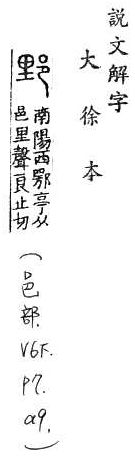 說文解字
大徐本
𨛋 南陽西鄂亭从
邑里聲良止切
(邑部.
V6F.
P7.
a9.)